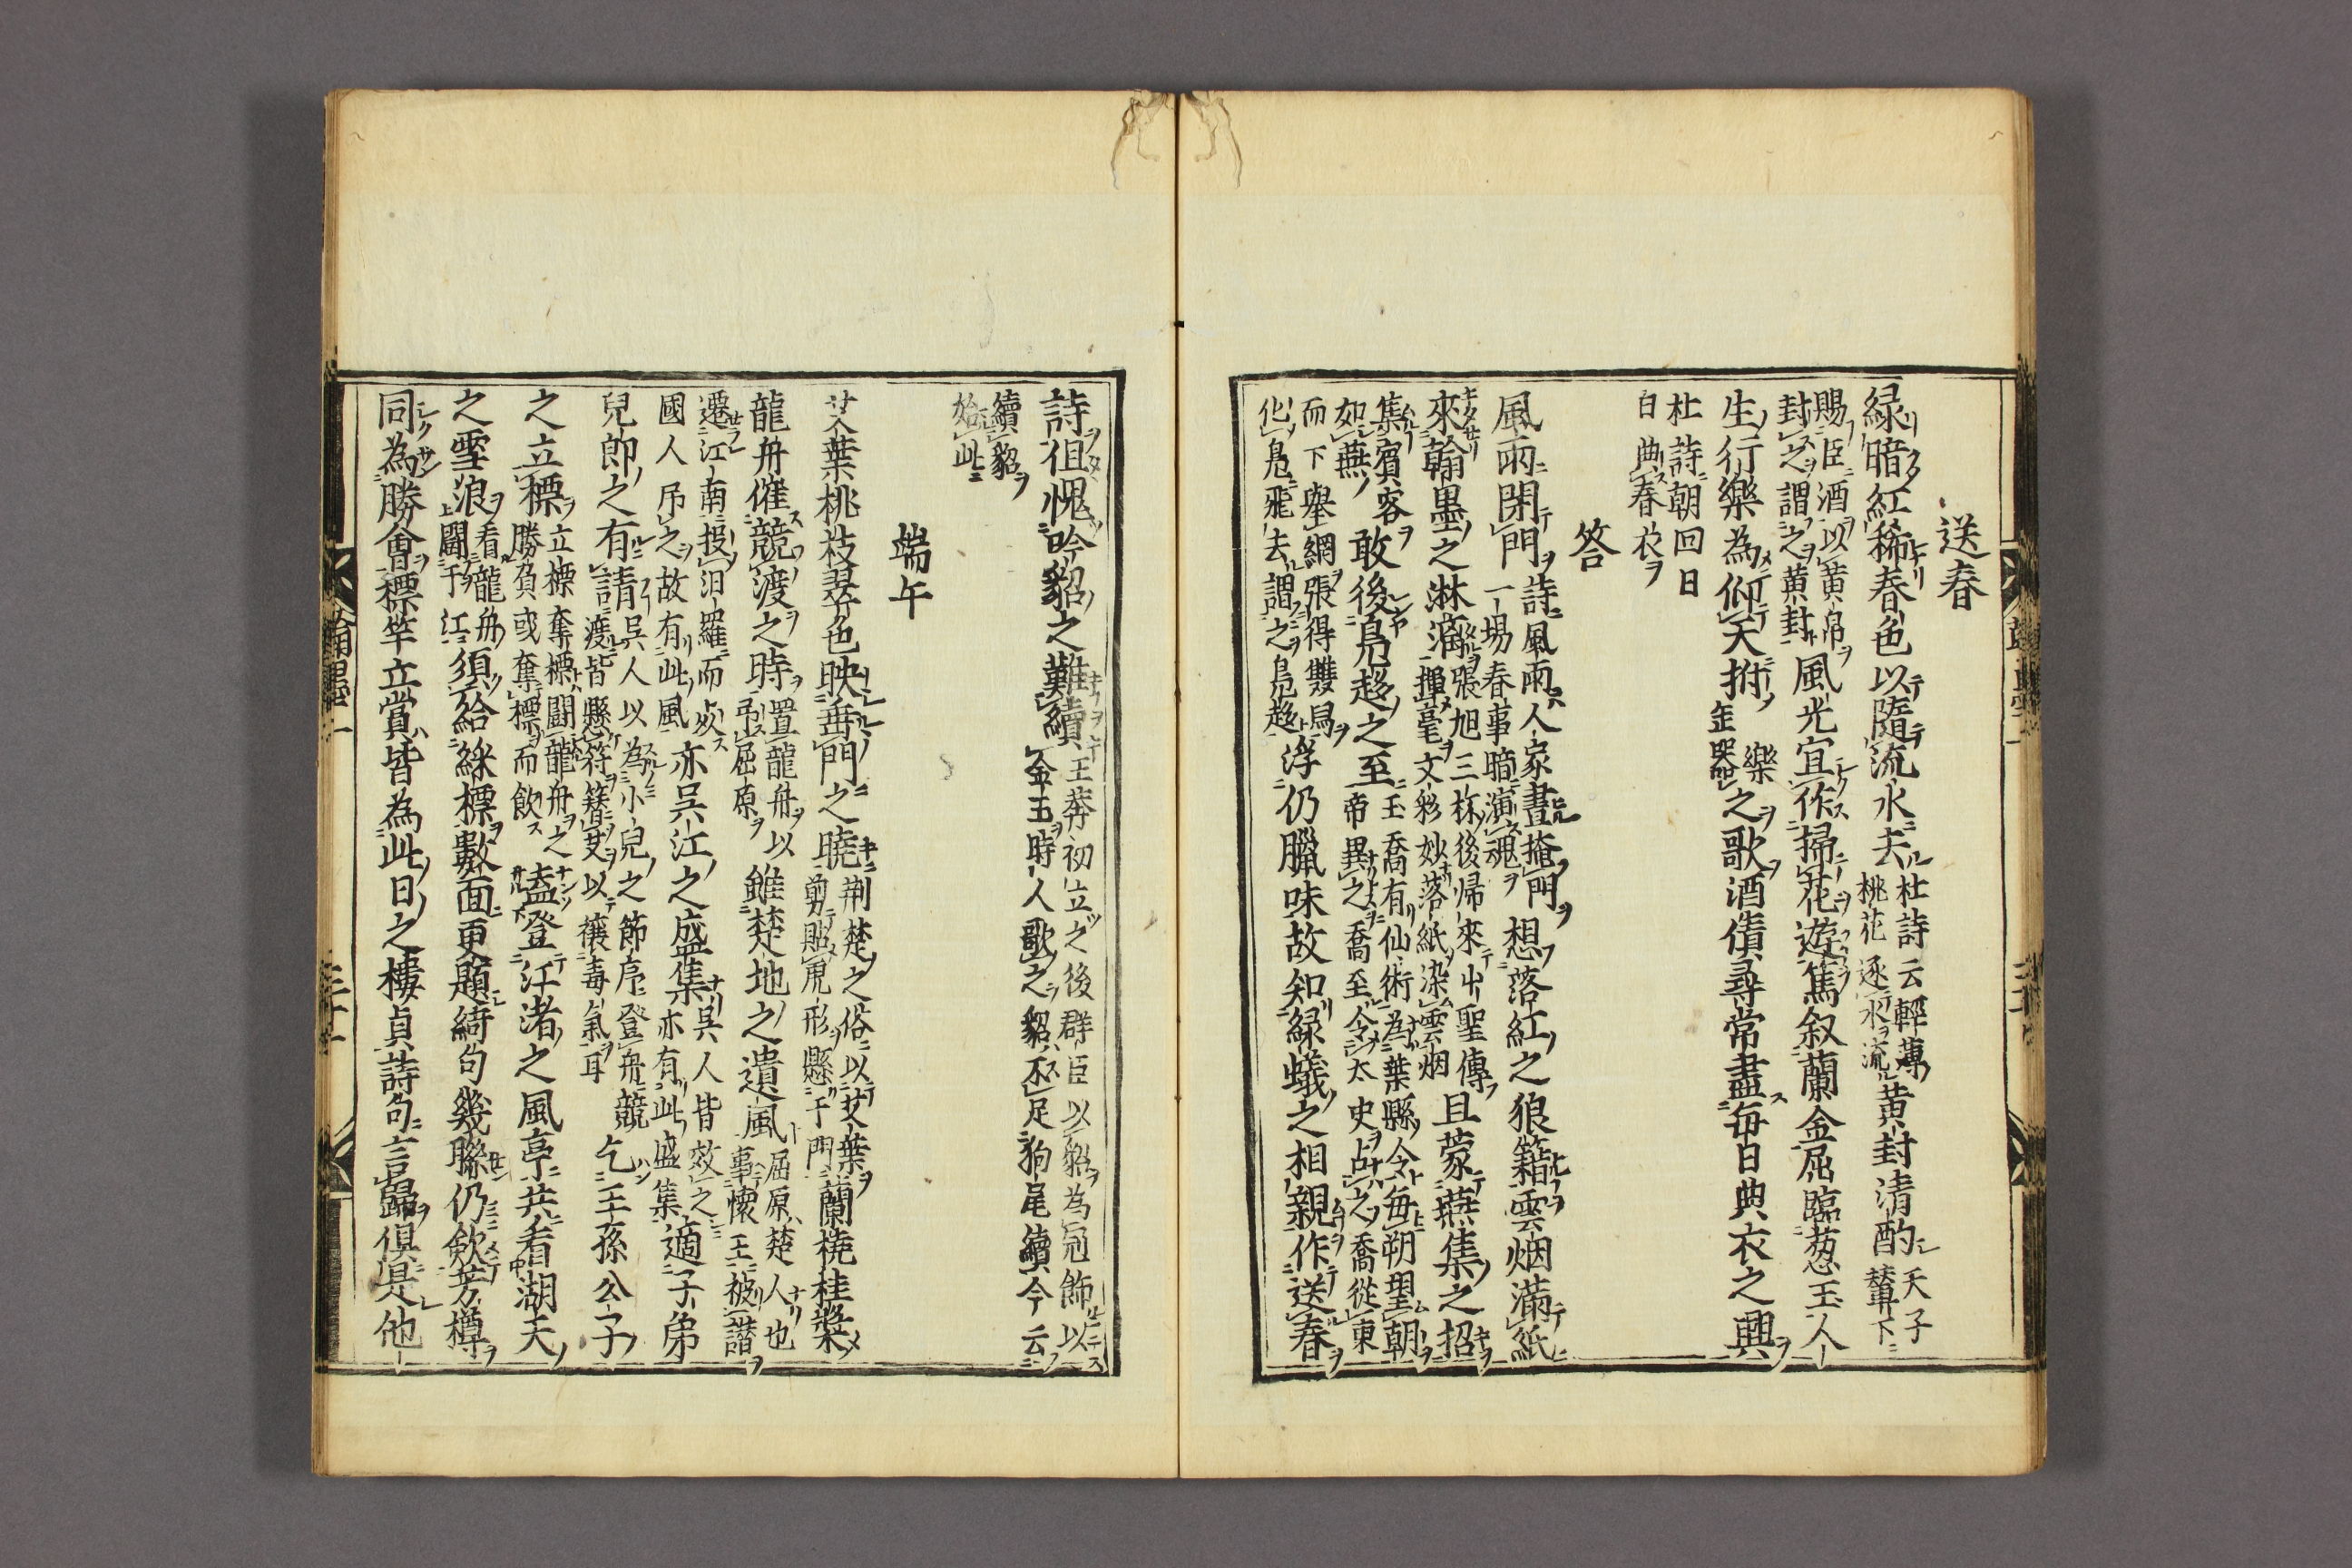 送春
緑暗紅稀春色以隨流水去杜詩云輕薄桃花逐水流黄封清酌天子輦下
賜臣酒以黄帛封之謂之黄封風光宜作掃花遊篤叙蘭金屈臨葱玉人
生行樂為仰天拊缶樂器也之歌酒債尋常盡每日典衣之興
杜詩朝回日日典春衣
答
風雨閑門詩風雨人家晝掩門一場春事暗演魂想落紅之狼籍雲烟滿紙
來翰墨之淋漓張旭三杯後歸來出聖傳揮毫文彩妙落紙染雲烟且蒙燕集之招
集賓客如燕敢後鳧趍之至王喬有仙術為葉縣令每朔望朝帝異之喬至令太史占之喬從東
而下舉網張得雙鳥化鳧飛去謂之鳧趍浮仍臘味故知緑蟻之相親作送春
詩徂愧吟貂之難續王莽初立之後群臣以貂為冠飾以金玉時人歌之貂不足狗尾續今云
續貂始此
端午
艾葉桃枝翠色映垂門之曉荆楚之俗以艾葉剪貼虎形懸于門蘭橈桂槳
龍舟催競渡之時置龍舟以弔屈原雖楚地之遺風屈原楚人也事懷王被譖
遷江南投汨羅而死國人吊之故有此風亦吳江之盛集吳人皆效之亦有此盛集適子弟
兒節之有請吳人以為小兒之節序登舟競渡皆懸符簪艾以禳毒氣耳乞王孫公子
之立標立標奪標鬪龍舟之勝負或奪標而飲盍登江渚之風亭共看湖天
之雪浪看龍舟鬪于江須給綵標數面更題綺句幾聯仍欽芳樽
同為勝會標竿立賞皆為此日之樓貞詩句言歸俱是他